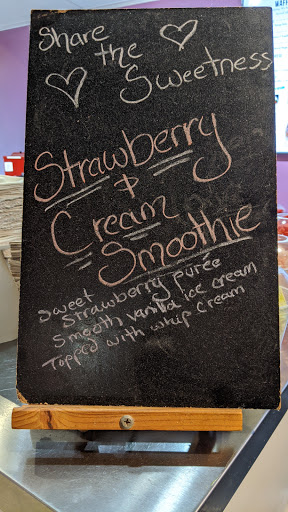 Share
the
Sweetness
Strawberry
&
Cream
Smoothie
Sweet
Strawberry purée
Smooth vanilla ice cream
Topped with whip cream